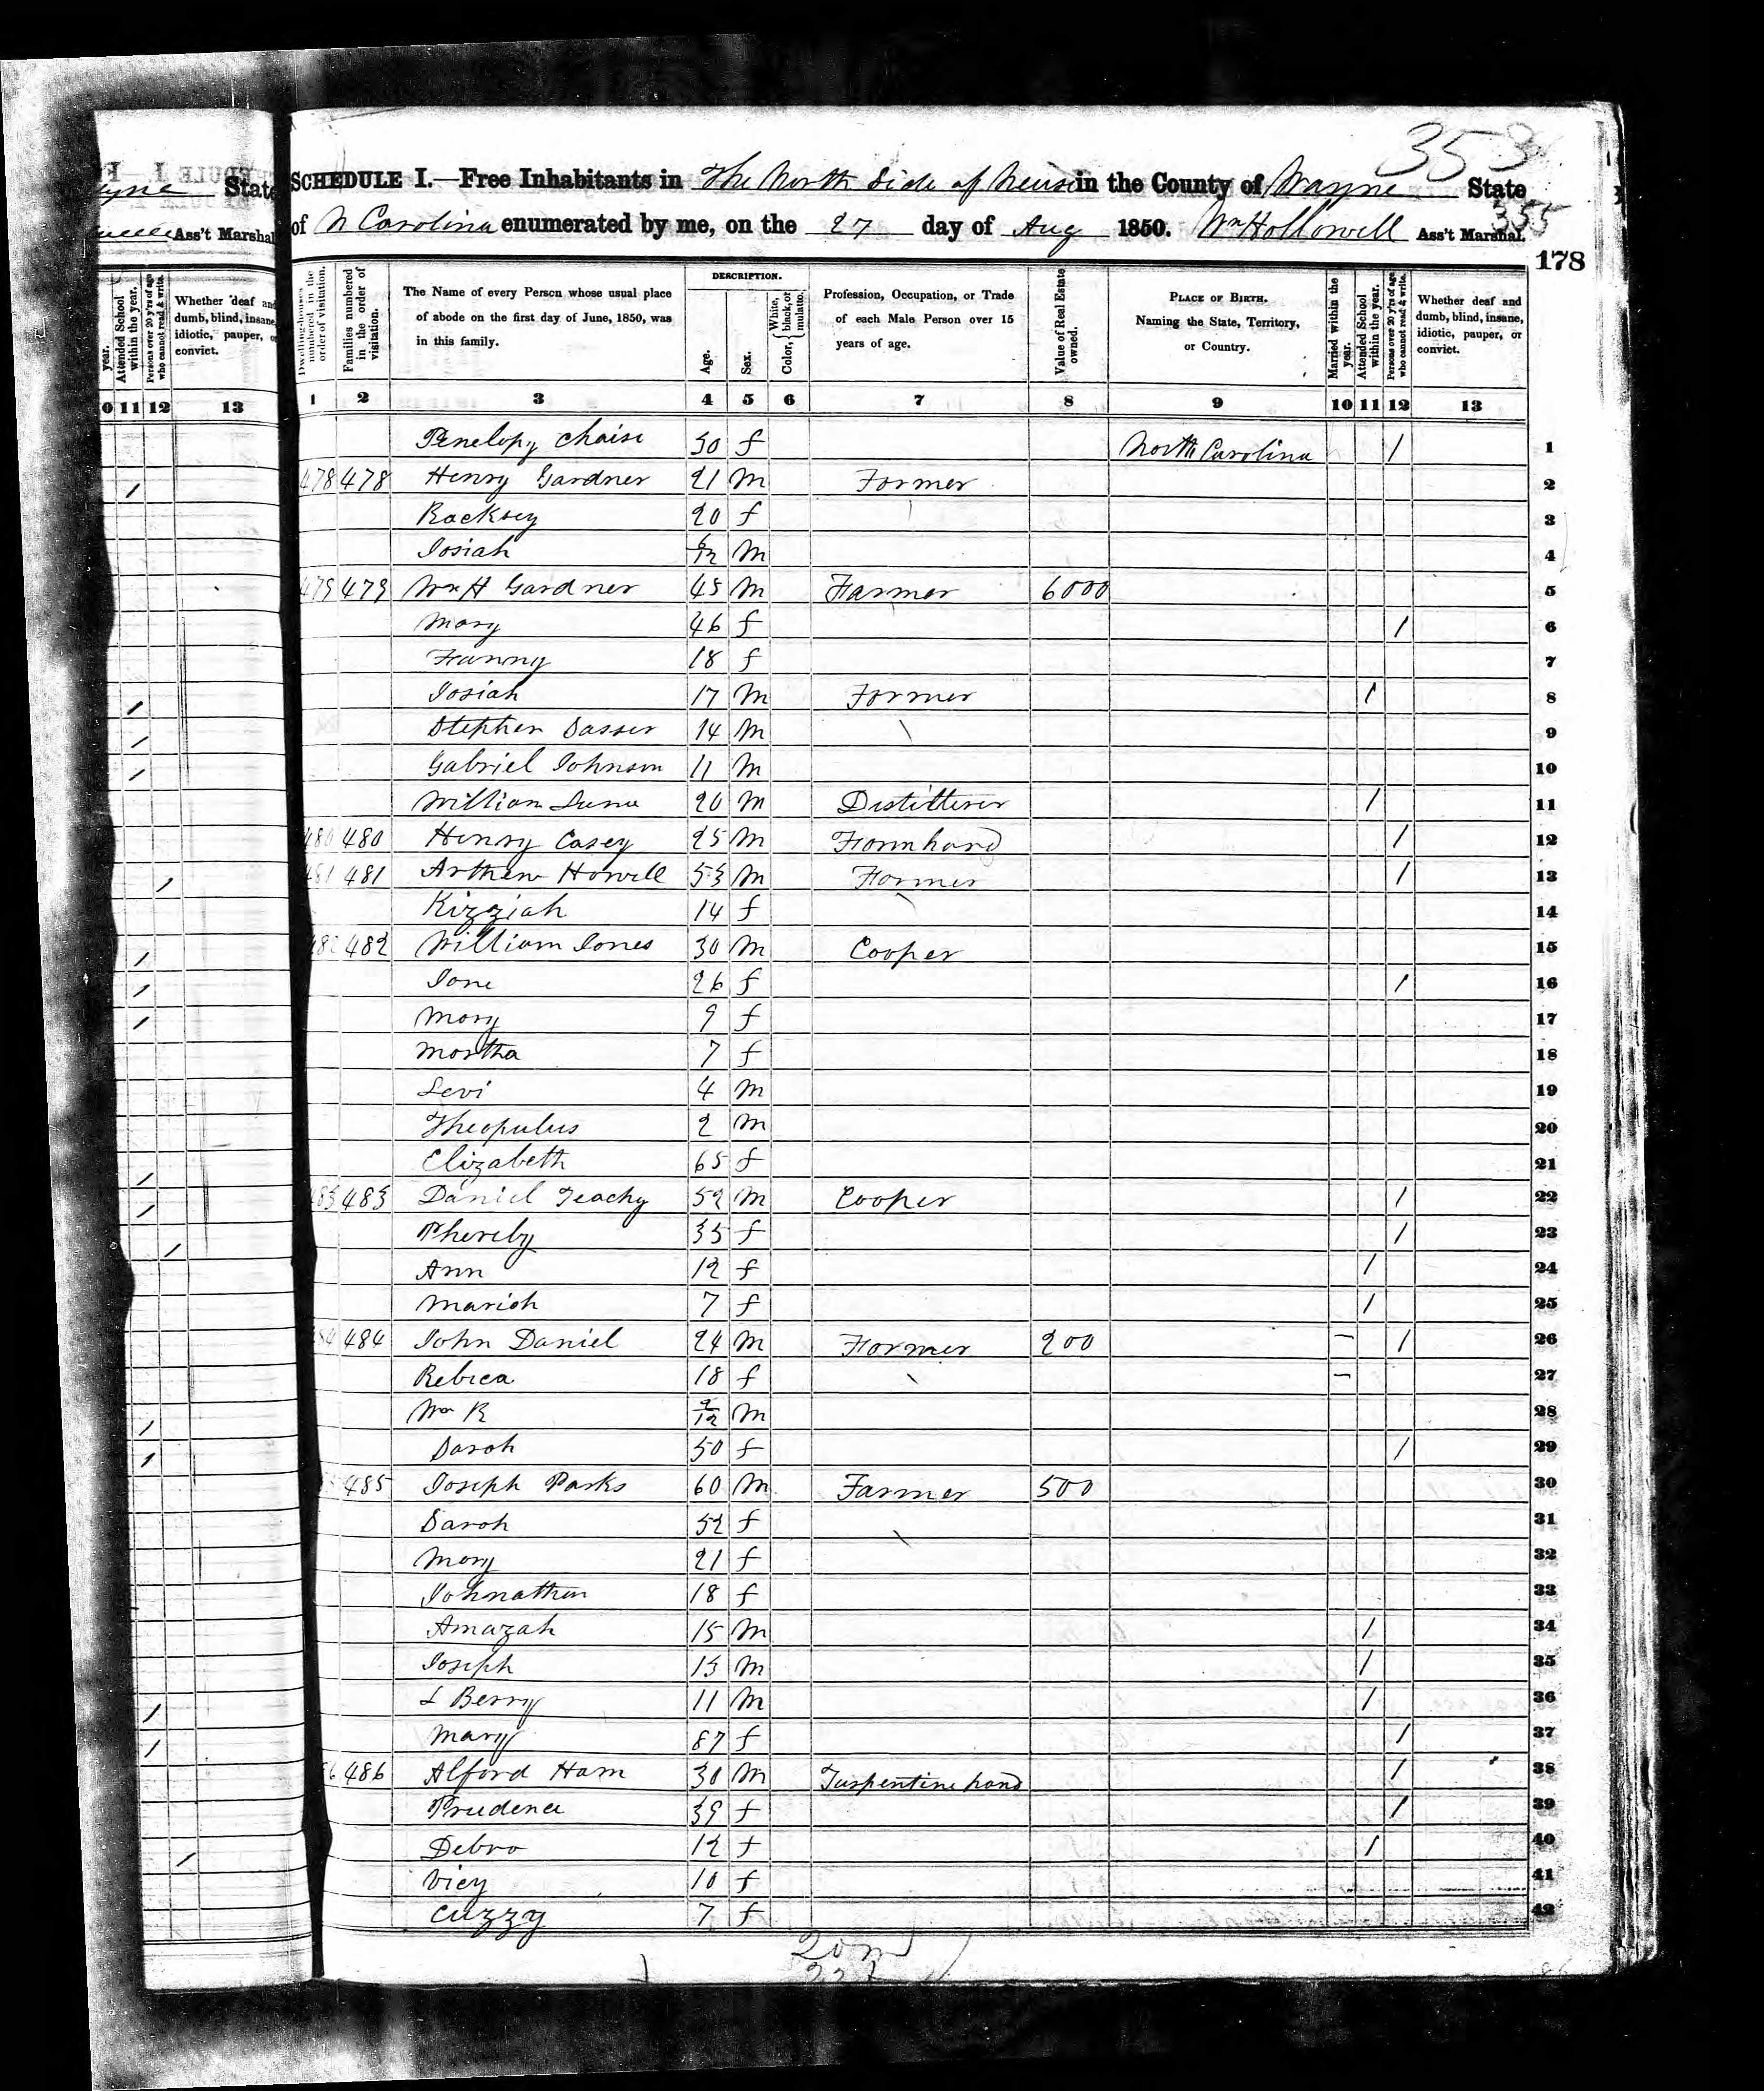 353
SCHEDULE I.—Free Inhabitants in The North Side of Neuse in the County of Wayne State
of N Carolina enumerated by me, on the 27 day of Aug 1850. Wm Hollowell Ass't Marshal.
355
178
State
Ass't Marshal
Dwelling-houses numbered in the order of visitation.
Families numbered in the order of visitation.
The Name of every Person whose usual place of abode on the first day of June, 1850, was in this family.
DESCRIPTION.
Age.
Sex.
Color, { White, black, or mulatto.
Profession, Occupation, or Trade of each Male Person over 15 years of age.
Value of Real Estate owned.
PLACE OF BIRTH. Naming the State, Territory, or Country.
Married within the year.
Attended School within the year.
Persons over 20 y'rs of age who cannot read & write.
Whether deaf and dumb, blind, insane, idiotic, pauper, or convict.
1 2 3 4 5 6 7 8 9 10 11 12 13
Penelopy Chaise 30 f North Carolina / 1
478 478 Henry Gardner 21 M Farmer 2
Racksey 20 f 3
Josiah 6/12 M 4
479 479 Wm H Gardner 45 M Farmer 6000 5
Mary 46 f / 6
Fanny 18 f 7
Josiah 17 M Farmer / 8
Stephen Sasser 14 M 9
Gabriel Johnson 11 M 10
William 20 M Distillerer / 11
480 480 Henry Casey 25 M Farmhand / 12
481 481 Arthew Howell 53 M Farmer / 13
Kizziah 14 f 14
482 482 William Jones 30 M Cooper 15
Jane 26 f / 16
Mary 9 f 17
Martha 7 f 18
Levi 4 M 19
Theopulus 2 M 20
Elizabeth 65 f 21
483 483 Daniel Teachy 52 M Cooper / 22
Phereby 35 f / 23
Ann 12 f / 24
Mariah 7 f / 25
484 484 John Daniel 24 M Farmer 200 – / 26
Rebica 18 f – 27
Wm R 2/12 M 28
Sarah 50 f / 29
485 Joseph Parks 60 M Farmer 500 30
Sarah 52 f 31
Mary 21 f 32
Johnathan 18 f 33
Amazah 15 M / 34
Joseph 13 M / 35
L Berry 11 M / 36
Mary 87 f / 37
486 Alford Ham 30 M Turpentine hand / 38
Prudence 39 f / 39
Debro 12 f / 40
Vicy 10 f 41
Cuzzy 7 f 42
20 m
22 f